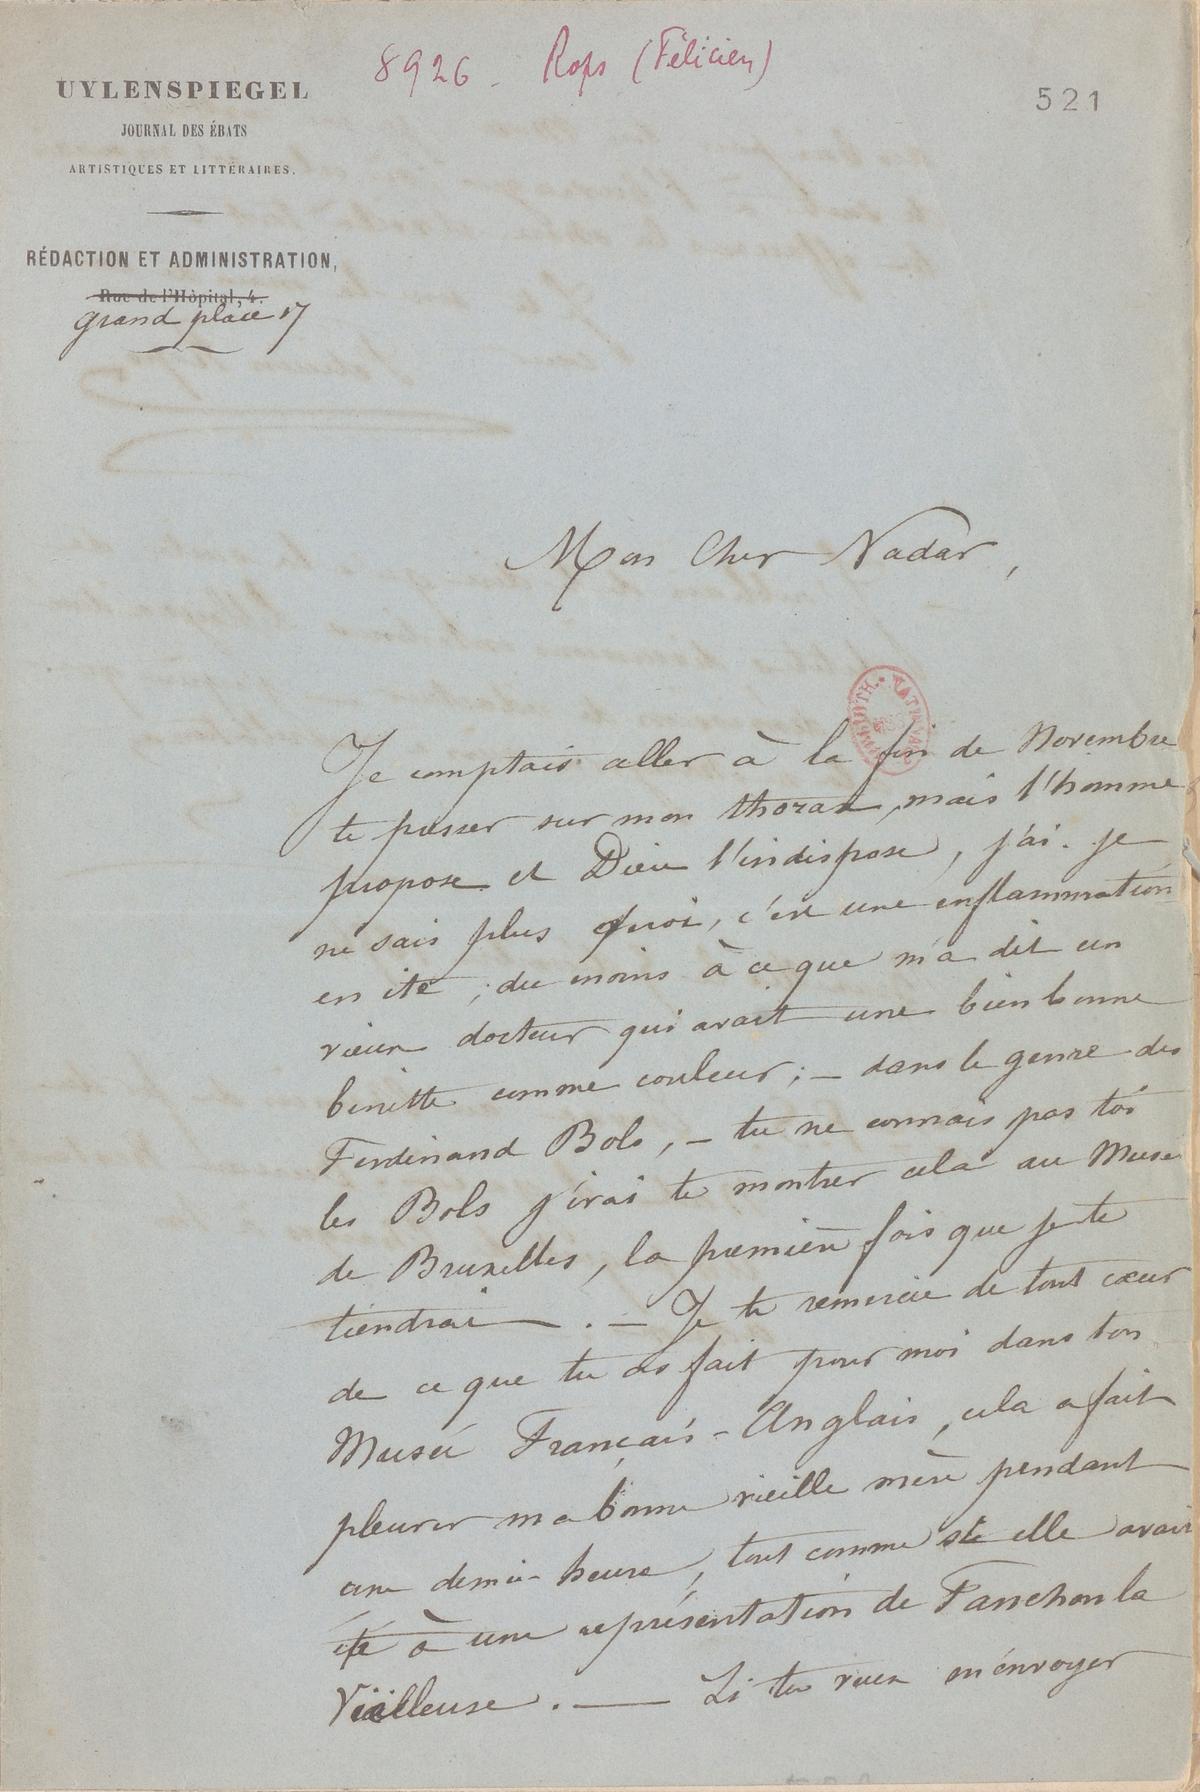 8926. Rops (Félicien)
521
UYLENSPIEGEL
JOURNAL DES ÉBATS
ARTISTIQUES ET LITTÉRAIRES.
RÉDACTION ET ADMINISTRATION,
Rue de l'Hôpital, 4.
Grand place 17
Mon Cher Nadar,
Je comptais aller à la fin de Novembre
te presser sur mon thorax, mais l'homme
propose et Dieu l'indispose, j'ai je
ne sais plus quoi, c'est une inflammation
en ite, du moins à ce que m'a dit un
vieux docteur qui avait une bien bonne
binette comme couleur; — dans le genre des
Ferdinand Bols, — tu ne connais pas toi
les Bols j'irai te montrer cela au Musée
de Bruxelles, la première fois que je te
tiendrai. — Je te remercie de tout cœur
de ce que tu as fait pour moi dans ton
Musée Français-Anglais, cela a fait
pleurer ma bonne vieille mère pendant
une demie heure, tout comme si elle avait
été à une représentation de Fanchon la
Vielleuse. — Si tu veux m'envoyer